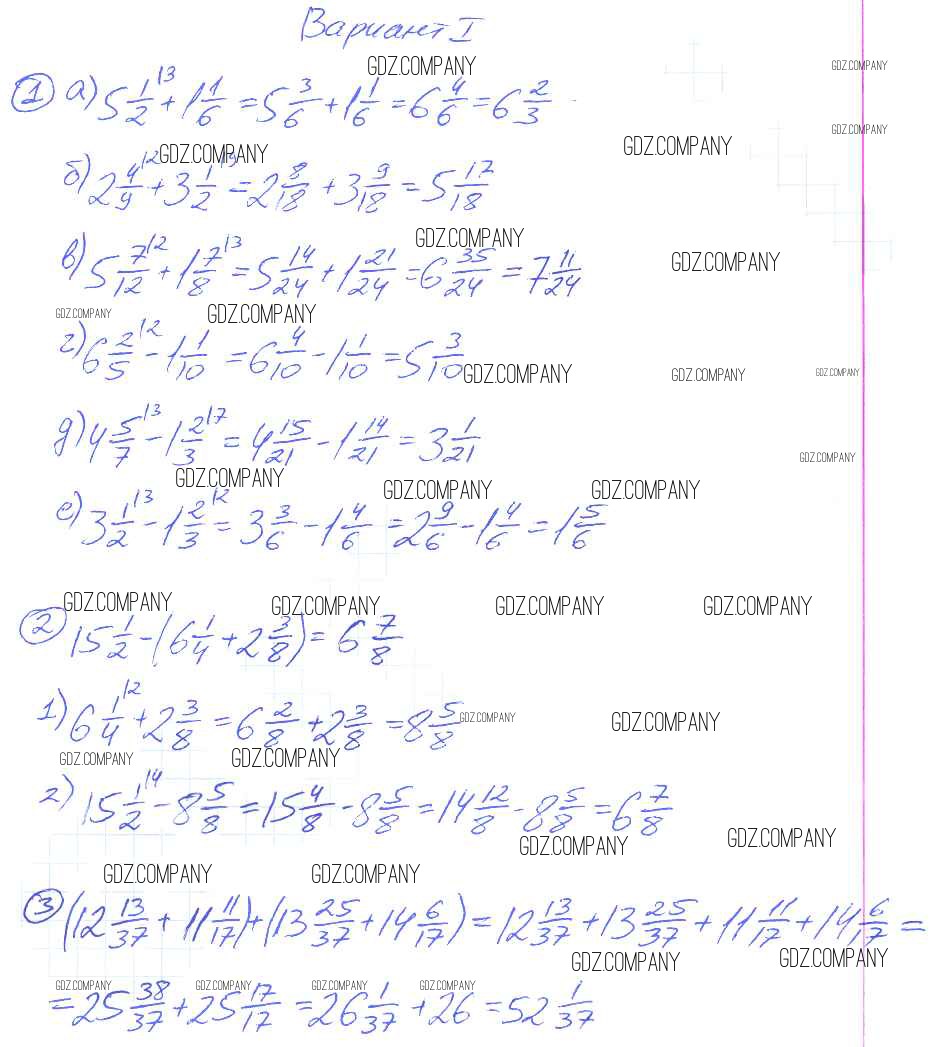 Вариант I
GDZ.COMPANY GDZ.COMPANY
① а) 5 1/2 ¹³ + 1 1/6 = 5 3/6 + 1 1/6 = 6 4/6 = 6 2/3
GDZ.COMPANY
GDZ.COMPANY GDZ.COMPANY
б) 2 4/9 ¹² + 3 1/2 ¹⁹ = 2 8/18 + 3 9/18 = 5 17/18
GDZ.COMPANY GDZ.COMPANY
в) 5 7/12 ¹² + 1 7/8 ¹³ = 5 14/24 + 1 21/24 = 6 35/24 = 7 11/24
GDZ.COMPANY GDZ.COMPANY
г) 6 2/5 ¹² - 1 1/10 = 6 4/10 - 1 1/10 = 5 3/10
GDZ.COMPANY GDZ.COMPANY GDZ.COMPANY
д) 4 5/7 ¹³ - 1 2/3 ¹⁷ = 4 15/21 - 1 14/21 = 3 1/21
GDZ.COMPANY
GDZ.COMPANY GDZ.COMPANY GDZ.COMPANY
е) 3 1/2 ¹³ - 1 2/3 ¹² = 3 3/6 - 1 4/6 = 2 9/6 - 1 4/6 = 1 5/6
GDZ.COMPANY GDZ.COMPANY GDZ.COMPANY GDZ.COMPANY
② 15 1/2 - (6 1/4 + 2 3/8) = 6 7/8
1) 6 1/4 ¹² + 2 3/8 = 6 2/8 + 2 3/8 = 8 5/8
GDZ.COMPANY GDZ.COMPANY
GDZ.COMPANY GDZ.COMPANY
2) 15 1/2 ¹⁴ - 8 5/8 = 15 4/8 - 8 5/8 = 14 12/8 - 8 5/8 = 6 7/8
GDZ.COMPANY GDZ.COMPANY
GDZ.COMPANY GDZ.COMPANY
③ (12 13/37 + 11 11/17) + (13 25/37 + 14 6/17) = 12 13/37 + 13 25/37 + 11 11/17 + 14 6/17 =
GDZ.COMPANY GDZ.COMPANY
GDZ.COMPANY GDZ.COMPANY GDZ.COMPANY GDZ.COMPANY
= 25 38/37 + 25 17/17 = 26 1/37 + 26 = 52 1/37